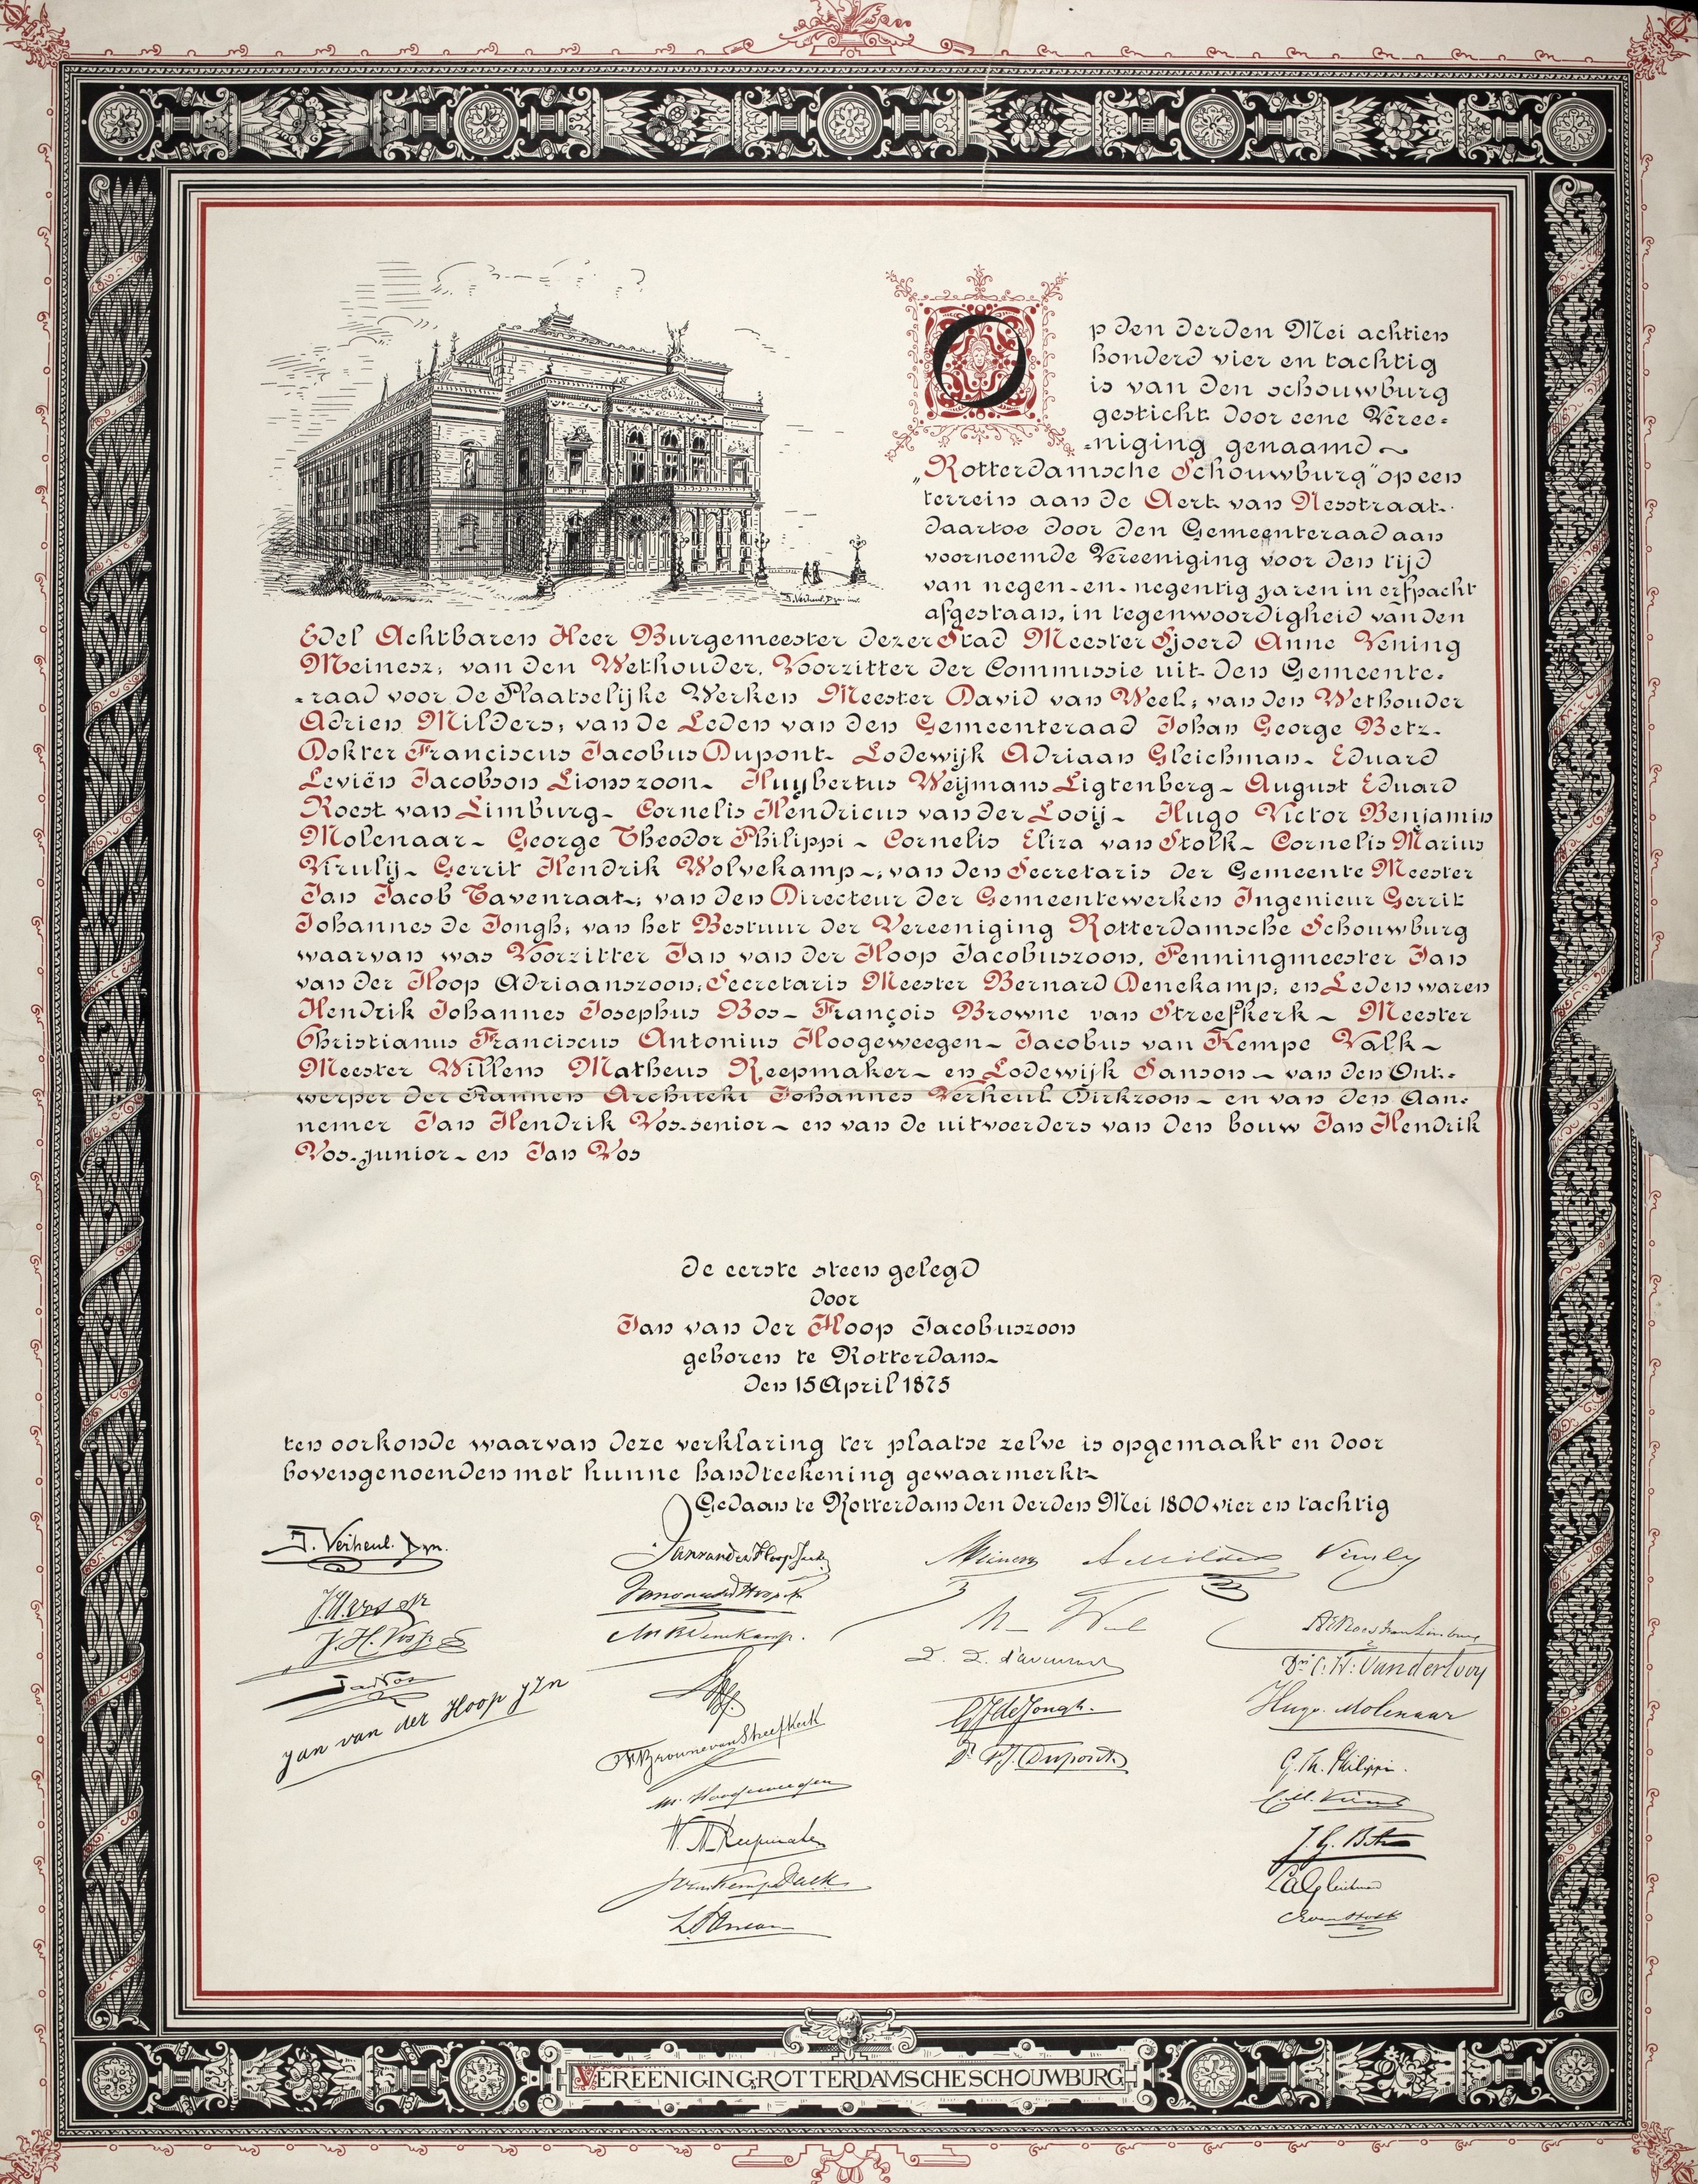 Op den derden Mei achtien
honderd vier en tachtig
is van den schouwburg
gesticht door eene Veree=
=niging genaamd ~
„Rotterdamsche Schouwburg” op een
terrein aan de Aert van Nesstraat.
daartoe door den Gemeenteraad aan
voornoemde Vereeniging voor den tijd
van negen-en-negentig jaren in erfpacht
afgestaan, in tegenwoordigheid van den
Edel Achtbaren Heer Burgemeester dezer Stad Meester Sjoerd Anne Vening
Meinesz; van den Wethouder, Voorzitter der Commissie uit den Gemeente=
=raad voor de Plaatselijke Werken Meester David van Weel; van den Wethouder
Adrien Milders; van de Leden van den Gemeenteraad Johan George Betz-
Dokter Franciscus Jacobus Dupont- Lodewijk Adriaan Gleichman- Eduard
Leviën Jacobson Lionszoon- Huybertus Weijmans Ligtenberg- August Eduard
Roest van Limburg- Cornelis Hendricus van der Looij- Hugo Victor Benjamin
Molenaar- George Theodor Philippi- Cornelis Eliza van Stolk- Cornelis Marius
Viruly- Gerrit Hendrik Wolvekamp-; van den Secretaris der Gemeente Meester
Jan Jacob Tavenraat-; van den Directeur der Gemeentewerken Ingenieur Gerrit
Johannes de Jongh; van het Bestuur der Vereeniging Rotterdamsche Schouwburg
waarvan was Voorzitter Jan van der Hoop Jacobuszoon, Penningmeester Jan
van der Hoop Adriaanszoon; Secretaris Meester Bernard Denekamp; en Leden waren
Hendrik Johannes Josephus Bos- François Browne van Streefkerk- Meester
Christianus Franciscus Antonius Hoogeweegen- Jacobus van Kempe Valk-
Meester Willem Matheus Reepmaker- en Lodewijk Sanson- van den Ont=
werper der Plannen Architekt Johannes Verheul Dirkzoon- en van den Aan=
nemer Jan Hendrik Vos-senior- en van de uitvoerders van den bouw Jan Hendrik
Vos-junior- en Jan Vos
de eerste steen gelegd
door
Jan van der Hoop Jacobuszoon
geboren te Rotterdam-
den 15 April 1875
ten oorkonde waarvan deze verklaring ter plaatse zelve is opgemaakt en door
bovengenoemden met hunne handteekening gewaarmerkt-
Gedaan te Rotterdam den derden Mei 1800 vier en tachtig
J. Verheul Dzn.
J.H. Vos Sr
J.H. Vos Jr
Jan Vos
Jan van der Hoop JZn
Jan van der Hoop
Jan van der Hoop
Mr B Denekamp.
F. Browne van Streefkerk
Mr. Hoogeweegen
W. M. Reepmaker
J van Kempe Valk
L Sanson
Meinesz
A Milders
Viruly
AE Roest van Limburg
Dr C. H. van der Looy
Hugo Molenaar
GJ de Jongh.
Dr F.J. Dupont
G. Th. Philippi.
J. G. Betz
LA Gleichman
CE van Stolk
J. Verheul Dzn inv.
VEREENIGING ROTTERDAMSCHE SCHOUWBURG